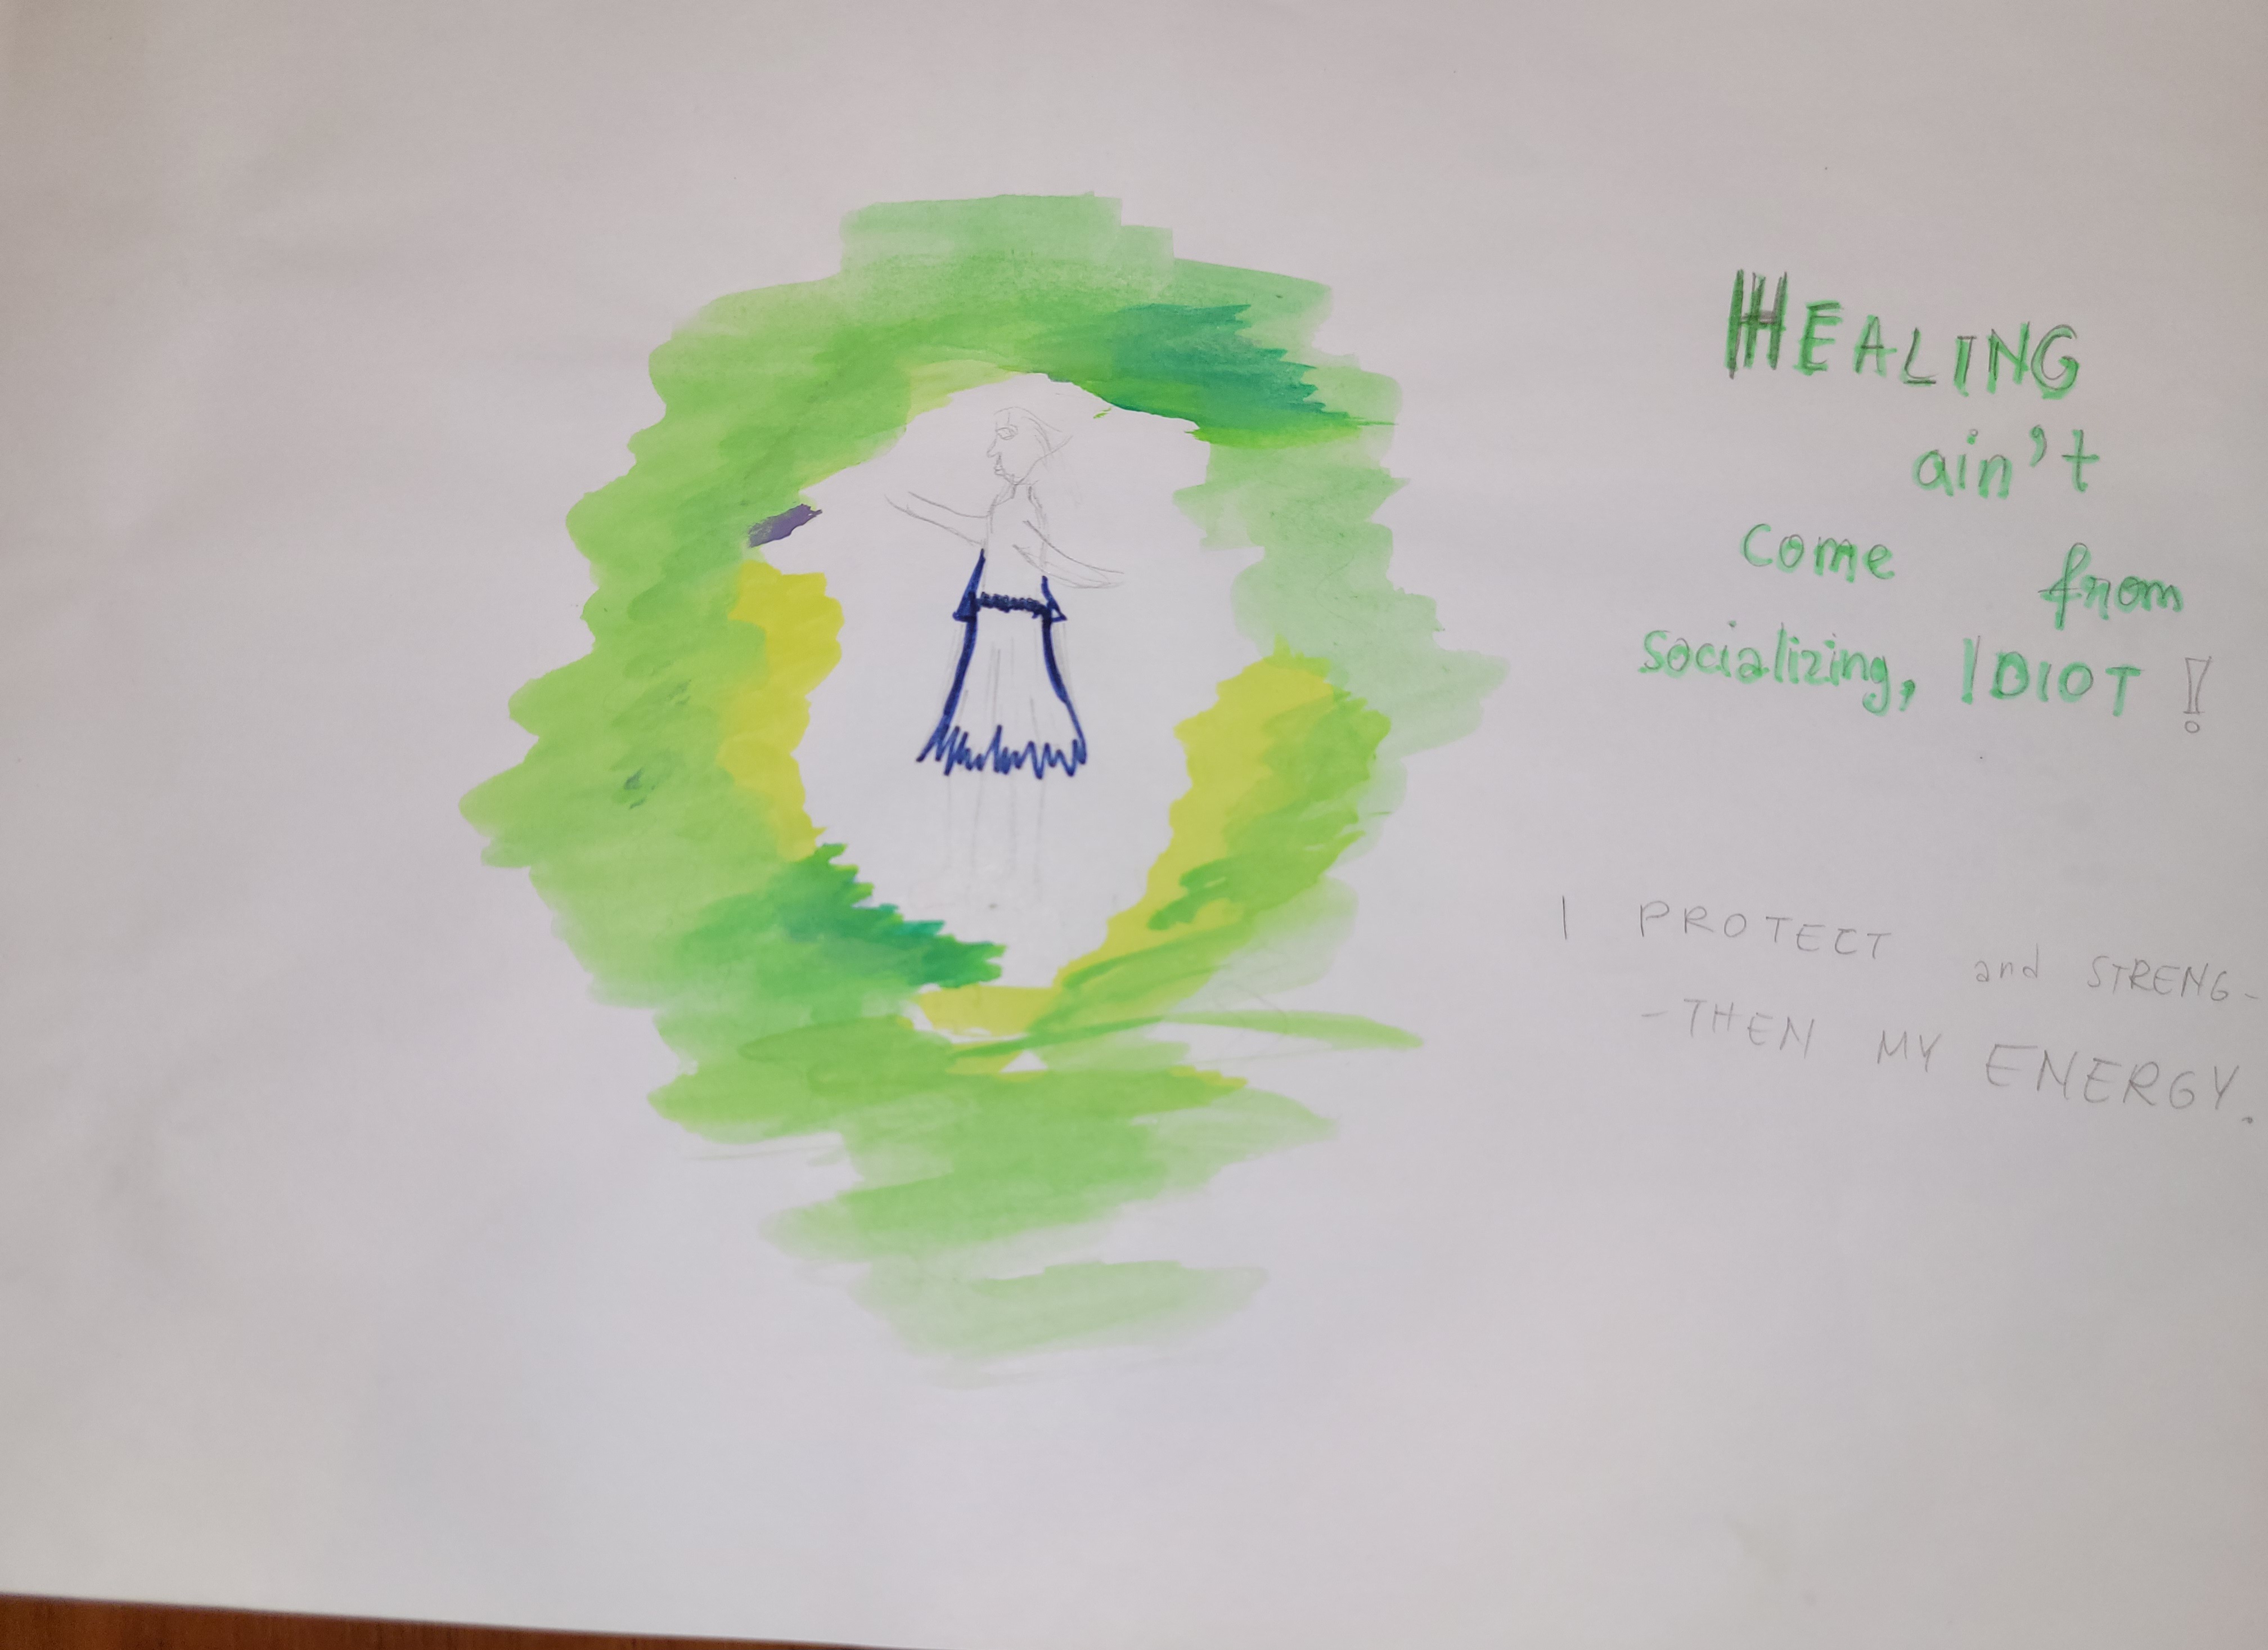 HEALING
ain't
come from
socializing, IDIOT!
I PROTECT and STRENG-
-THEN MY ENERGY.